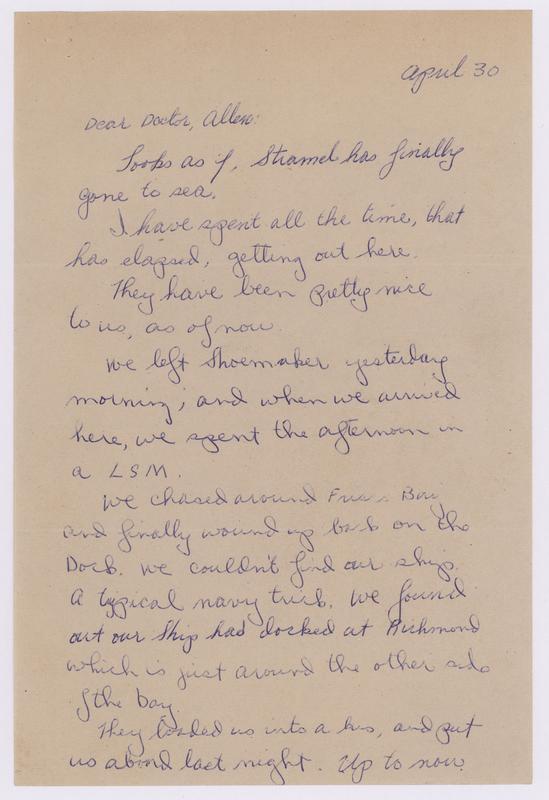 April 30
Dear Doctor, Allen:
Looks as if, Stramel has finally
gone to sea.
I have spent all the time, that
has elapsed, getting out here.
They have been pretty nice
to us, as of now.
We left Shoemaker yesterday
morning; and when we arrived
here, we spent the afternoon in
a LSM.
We chased around Bay
and finally wound up back on the
Dock. We couldn't find our ship.
A typical navy trick. We found
out our ship had docked at Richmond
which is just around the other side
of the bay.
They loaded us into a bus, and put
us aboard last night. Up to now